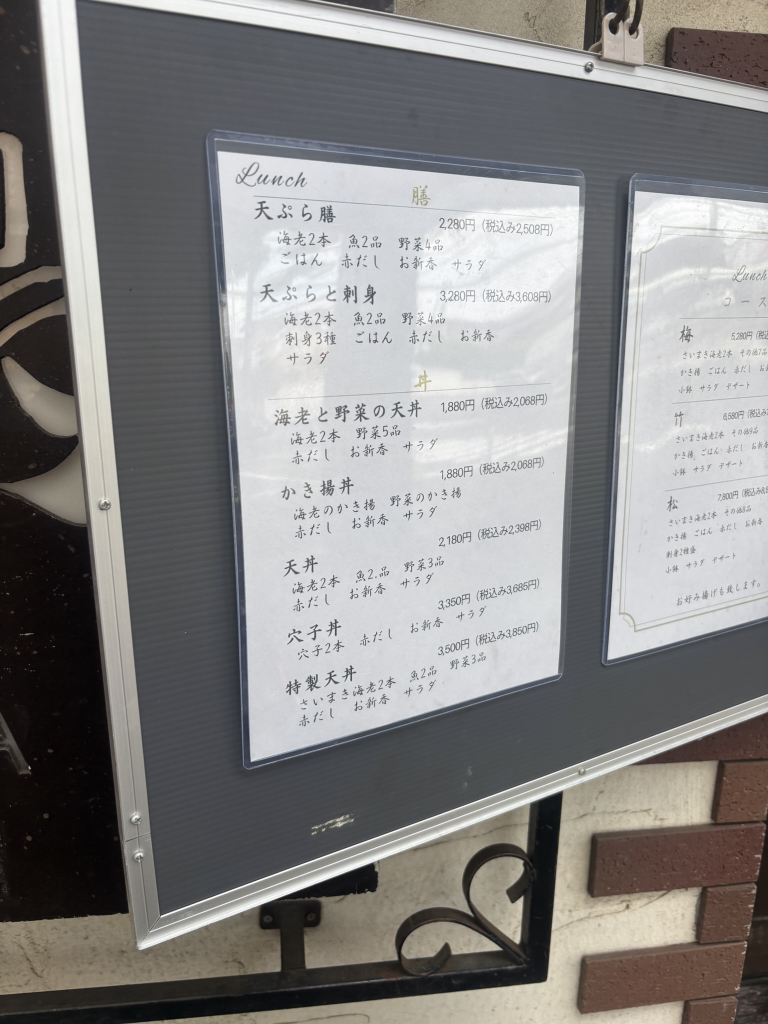 Lunch
膳
天ぷら膳 2,280円（税込み2,508円）
海老2本 魚2品 野菜4品
ごはん 赤だし お新香 サラダ
天ぷらと刺身 3,280円（税込み3,608円）
海老2本 魚2品 野菜4品
刺身3種 ごはん 赤だし お新香
サラダ
丼
海老と野菜の天丼 1,880円（税込み2,068円）
海老2本 野菜5品
赤だし お新香 サラダ
かき揚丼 1,880円（税込み2,068円）
海老のかき揚 野菜のかき揚
赤だし お新香 サラダ
天丼 2,180円（税込み2,398円）
海老2本 魚2.品 野菜3品
赤だし お新香 サラダ
穴子丼 3,350円（税込み3,685円）
穴子2本 赤だし お新香 サラダ
特製天丼 3,500円（税込み3,850円）
さいまき海老2本 魚2品 野菜3品
赤だし お新香 サラダ
Lunch
コース
梅 5,280円（税込
さいまき海老2本 その他7品
かき揚 ごはん 赤だし お
小鉢 サラダ デザート
竹 6,580円（税込
さいまき海老2本 その他9品
かき揚 ごはん 赤だし お
小鉢 サラダ デザート
松 7,800円（税込み8,5
さいまき海老2本 その他8品
かき揚 ごはん 赤だし お新香
刺身2種盛
小鉢 サラダ デザート
お好み揚げも致します。